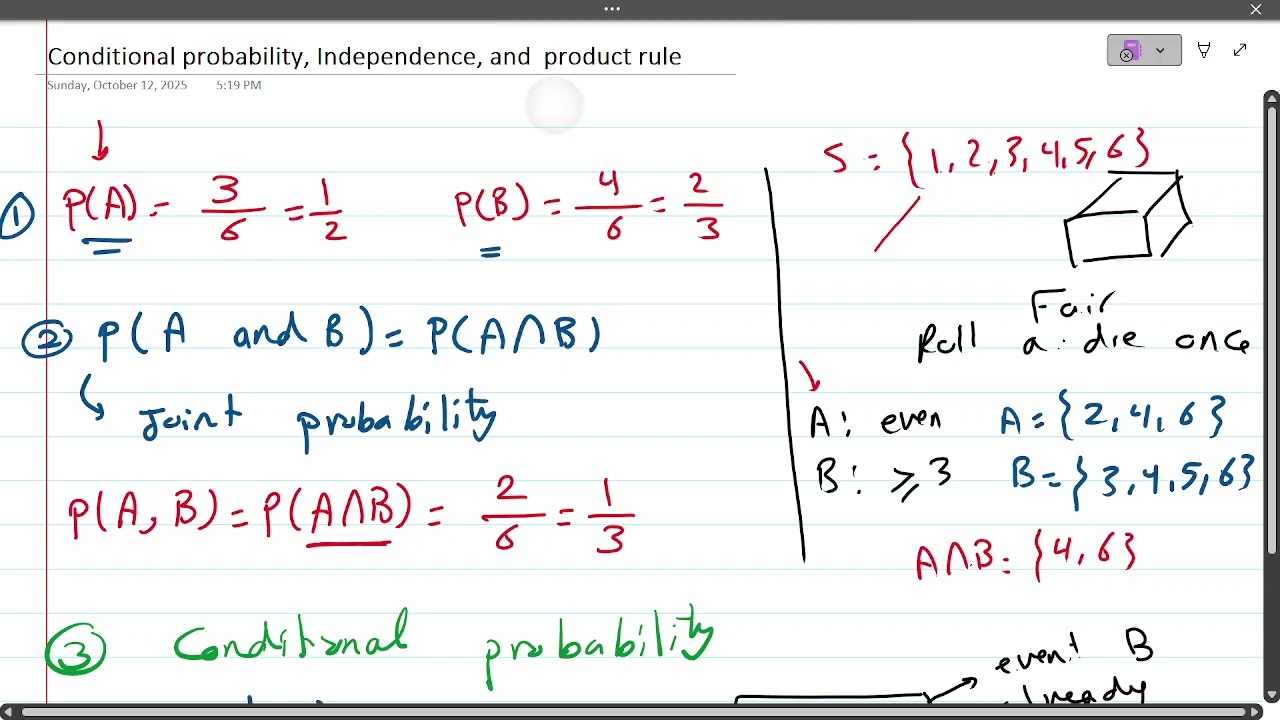 Conditional probability, Independence, and product rule
Sunday, October 12, 2025 5:19 PM
① P(A) = 3/6 = 1/2 P(B) = 4/6 = 2/3
② P(A and B) = P(A∩B)
Joint probability
P(A, B) = P(A∩B) = 2/6 = 1/3
③ Conditional probability
S = {1, 2, 3, 4, 5, 6}
Fair
Roll a die once
A: even A = {2, 4, 6}
B: ≥ 3 B = {3, 4, 5, 6}
A∩B = {4, 6}
event B
already